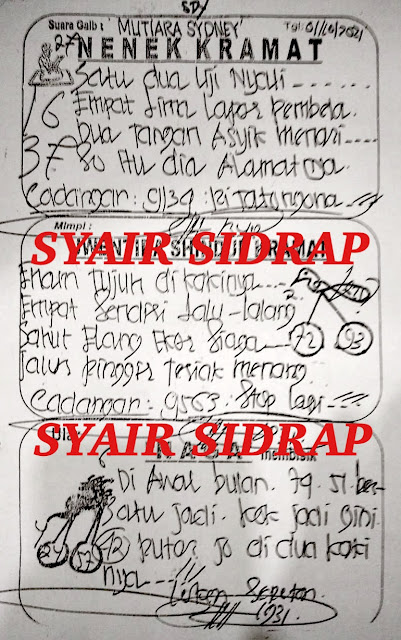 SDY
Suara Gaib : 'MUTIARA SYDNEY' Tgl: 01/10/2021
27 NENEK KRAMAT
Satu dua Uji Nyali
16 Empat Lima Lapar pembela
Dua Tangan Asyik menari
37 80 Itu dia Alamatnya
Cadangan : 9134
Mimpi :
SYAIR SIDRAP
KRAMAT
Enam Tujuh di kakinya
Empat Sendiri Lalu-lalang
Sahut Elang Ekor Siaga 72 93
Jalur pinggir Teriak menang
Cadangan : 9563 : Stop Lagi
SYAIR SIDRAP
membisik
Di Anak bulan. 79. 51. ber-
Satu jadi. kok jadi gini
putar 50 di dua kaki
nya
1931